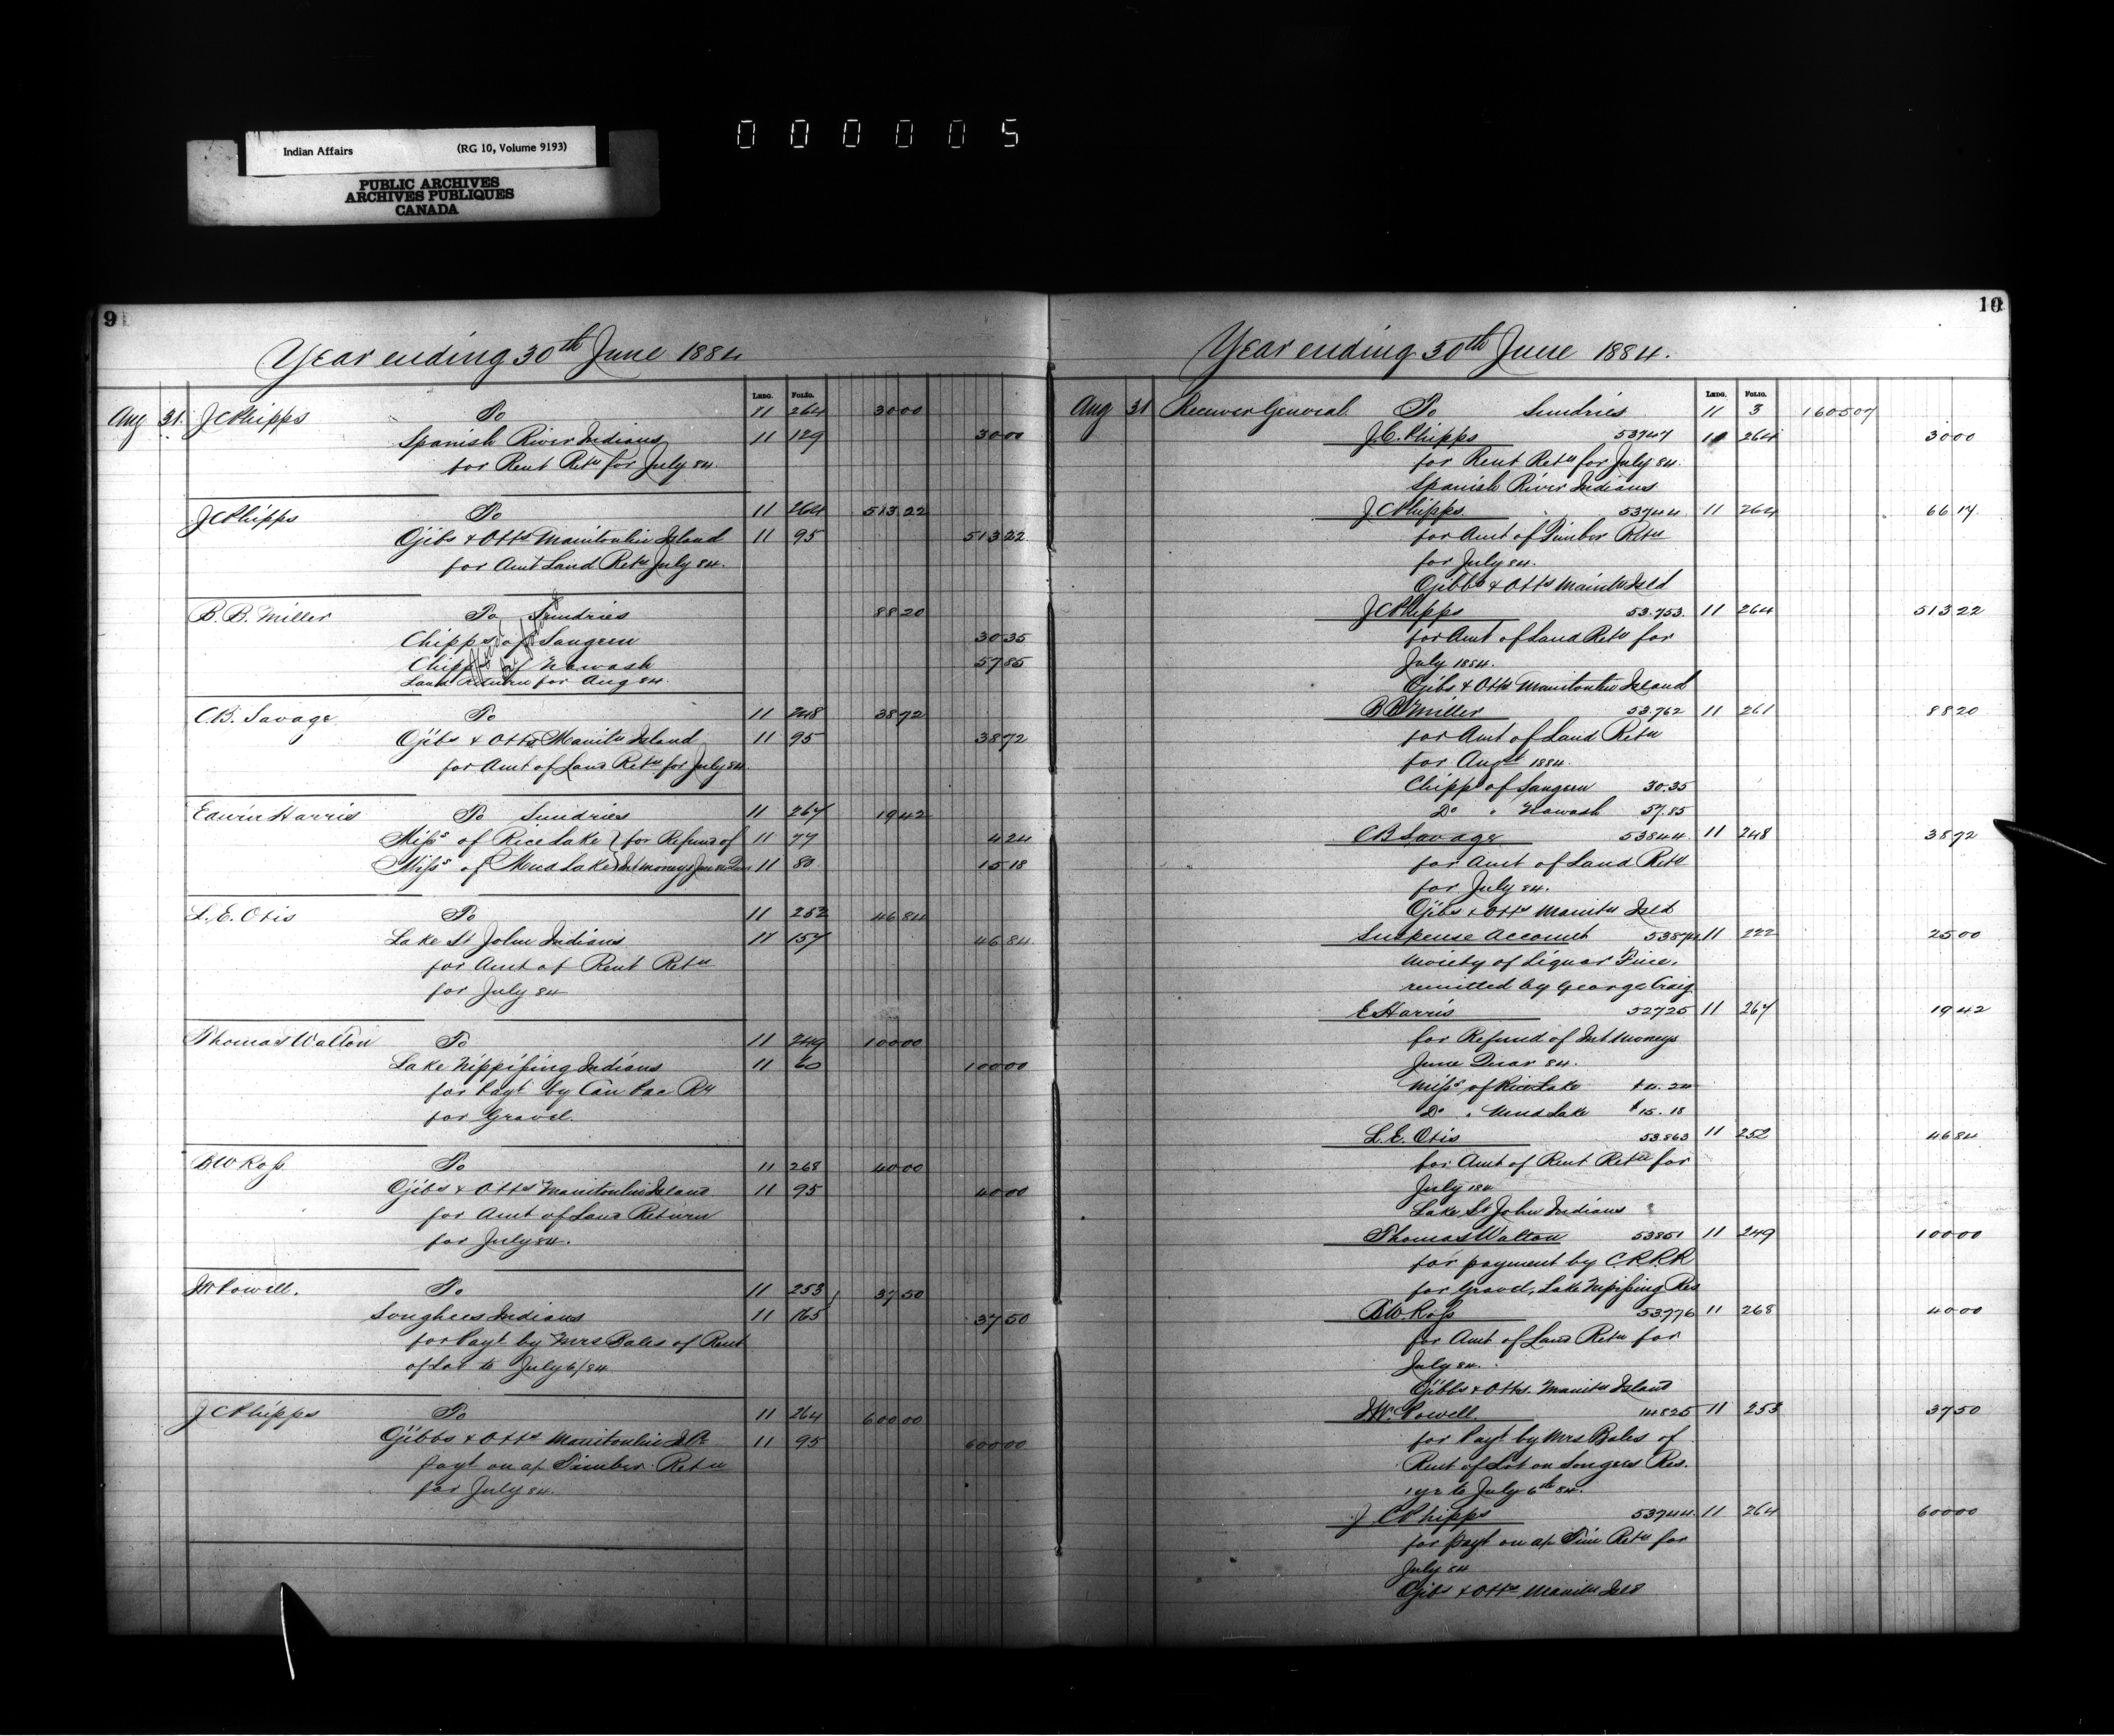 Indian Affairs (RG 10, Volume 9193)
PUBLIC ARCHIVES
ARCHIVES PUBLIQUES
CANADA
000005
9
Year ending 30th June 1884
LEDG. FOLIO.
Aug 31 J C Phipps To 11 264 30 00
Spanish River Indians 11 129 30 00
for Rent Retn for July 84.
J C Phipps To 11 264 513 22
Ojibs & Otts Manitoulin Island 11 95 513 22
for Amt Land Retn July 84.
B. B. Miller To Sundries 88 20
Chipps of Saugeen 30 35
Chipps of Nawash 57 85
Land Return for Aug 84.
C.B. Savage To 11 248 38 72
Ojibs & Otts Manitn Island 11 95 38 72
for Amt of Land Retn for July 84
Edwin Harris To Sundries 11 267 19 42
Miss of Rice Lake } for Refund of 11 77 4 24
Miss of Mud Lake } Int moneys June 11 80 15 18
L. E. Otis To 11 252 46 84
Lake St John Indians 11 157 46 84
for Amt of Rent Retn
for July 84
Thomas Walton To 11 249 100 00
Lake Nippissing Indians 11 60 100 00
for Payt by Can Pac Ry
for Gravel.
B W Ross To 11 268 40 00
Ojibs & Otts Manitoulin Island 11 95 40 00
for Amt of Land Return
for July 84.
J W Powell. To 11 253 37 50
Songhees Indians 11 165 37 50
for Payt by Mrs Bales of Rent
of Lot to July 6/84
J C Phipps To 11 264 600 00
Ojibbs & Otts Manitoulin Id 11 95 600 00
Payt on a/c Timber Retn
for July 84.
10
Year ending 30th June 1884.
LEDG. FOLIO.
Aug 31 Receiver General To Sundries 11 3 1605 07
J. C. Phipps 53747 11 264 30 00
for Rent Retn for July 84.
Spanish River Indians
J C Phipps 53744 11 264 66 17
for Amt of Timber Retn
for July 84.
Ojibbs & Otts Manitn Isld
J C Phipps 53.753. 11 264 513 22
for Amt of Land Retn for
July 1884.
Ojibs & Otts Manitoulin Island
B B Miller 53.762 11 261 88 20
for Amt of Land Retn
for Augt 1884.
Chipps of Saugeen 30.35
Do " Nawash 57.85
C B Savage 53844 11 248 38 72
for Amt of Land Retn
for July 84.
Ojibs & Otts Manitn Isld
Suspense Account 11 222 25 00
Moiety of Liquor Fine.
remitted by George Craig
E Harris 52725 11 267 19 42
for Refund of Int Moneys
June Quar 84.
Miss of Rice Lake $4.24
Do " Mud Lake $15.18
L. E. Otis 53.863 11 252 46 84
for Amt of Rent Retn for
July 184
Lake St John Indians
Thomas Walton 53851 11 249 100 00
for payment by C.P.R.R
for Gravel, Lake Nipissing Res
B W Ross 53776 11 268 40 00
for Amt of Land Retn for
July 84.
Ojibbs & Otts. Manitn Island
J W. Powell. 14825 11 253 37 50
for Payt by Mrs Bales of
Rent of Lot on Songees Res.
1 yr to July 6th 84.
J C Phipps 53744. 11 264 600 00
for Payt on a/c Tim Retn for
July 84
Ojibs & Otts Manitn Isld